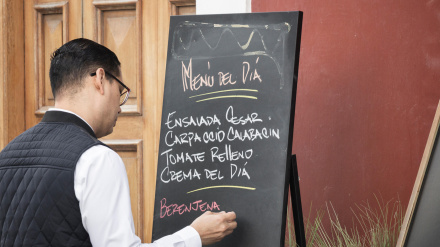 MENÚ DEL DIÁ
ENSALADA CESAR
CARPACCIO CALABACIN
TOMATE RELLENO
CREMA DEL DIA
BERENJENA